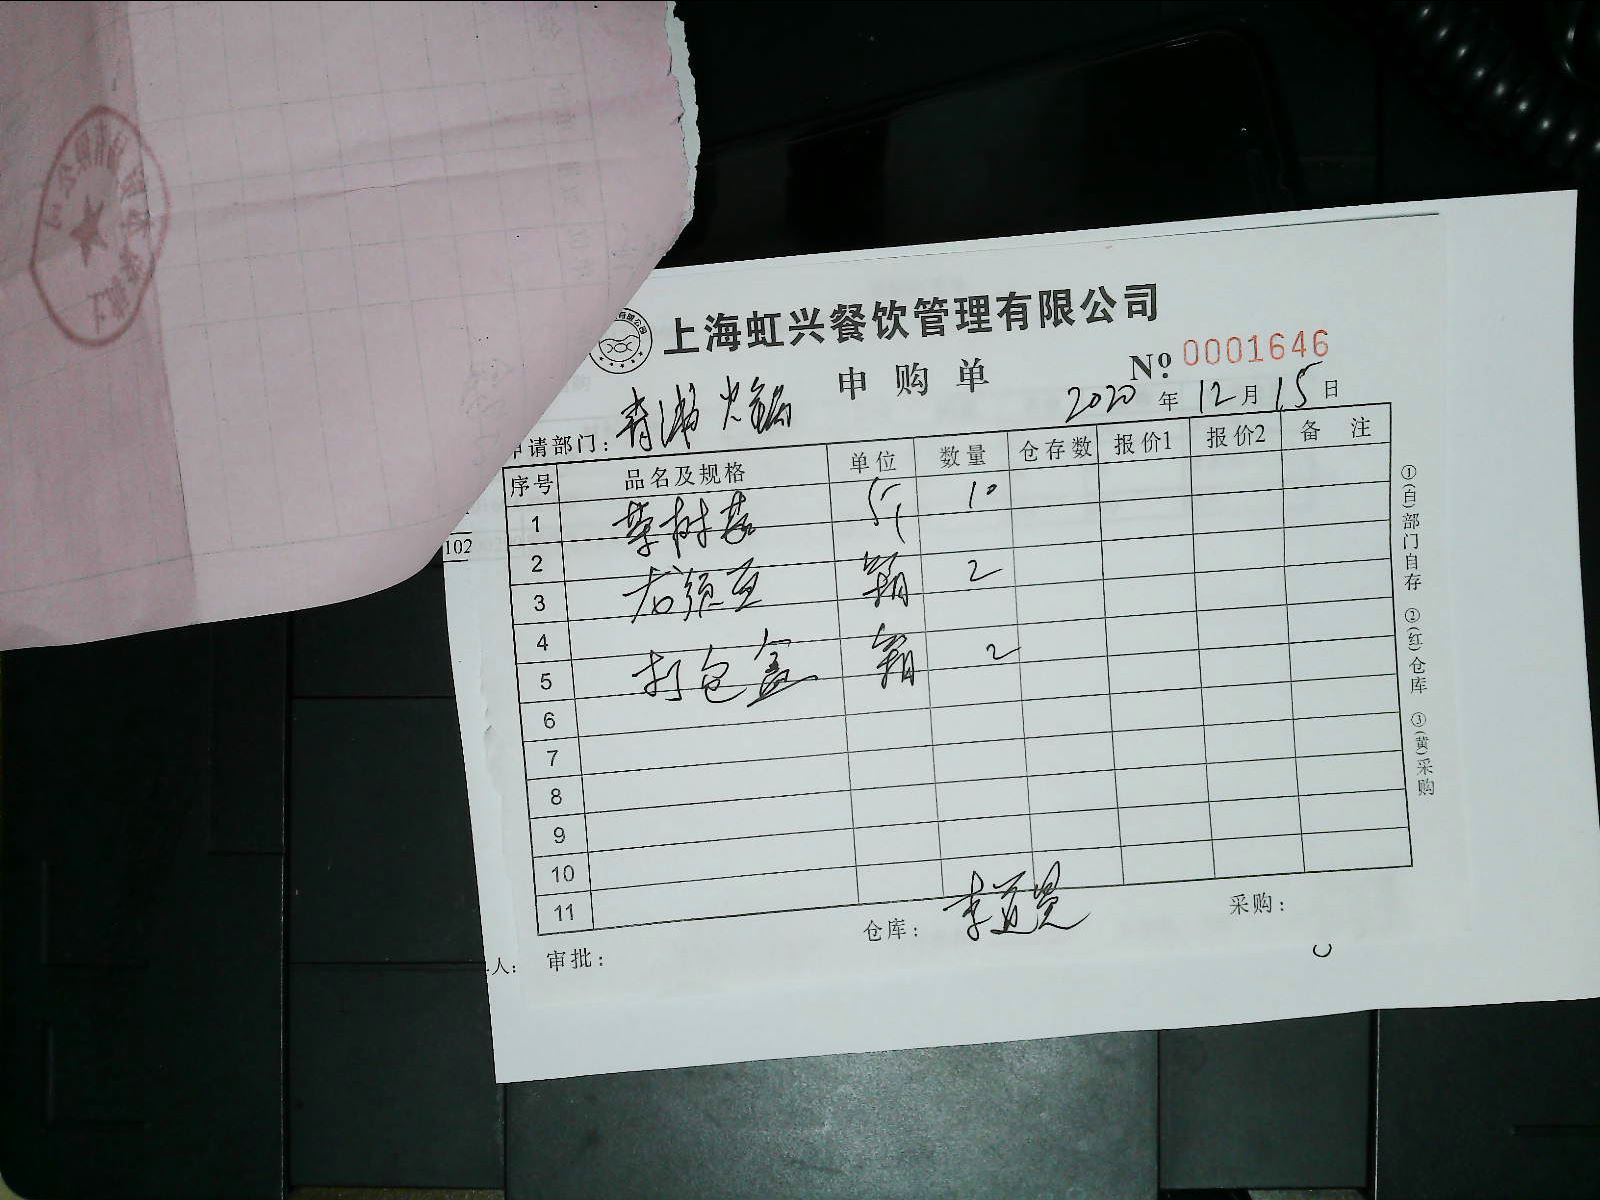 上海虹兴餐饮管理有限公司
申购单
No. 0001646
申请部门: 火锅
2020年12月15日
序号 品名及规格 单位 数量 仓存数 报价1 报价2 备注
1 茶树菇 斤 10
2
3 龙须豆 箱 2
4
5 打包盒 箱 2
6
7
8
9
10
11
人: 审批: 仓库: 采购:
①(白)部门自存 ②(红)仓库 ③(黄)采购
102